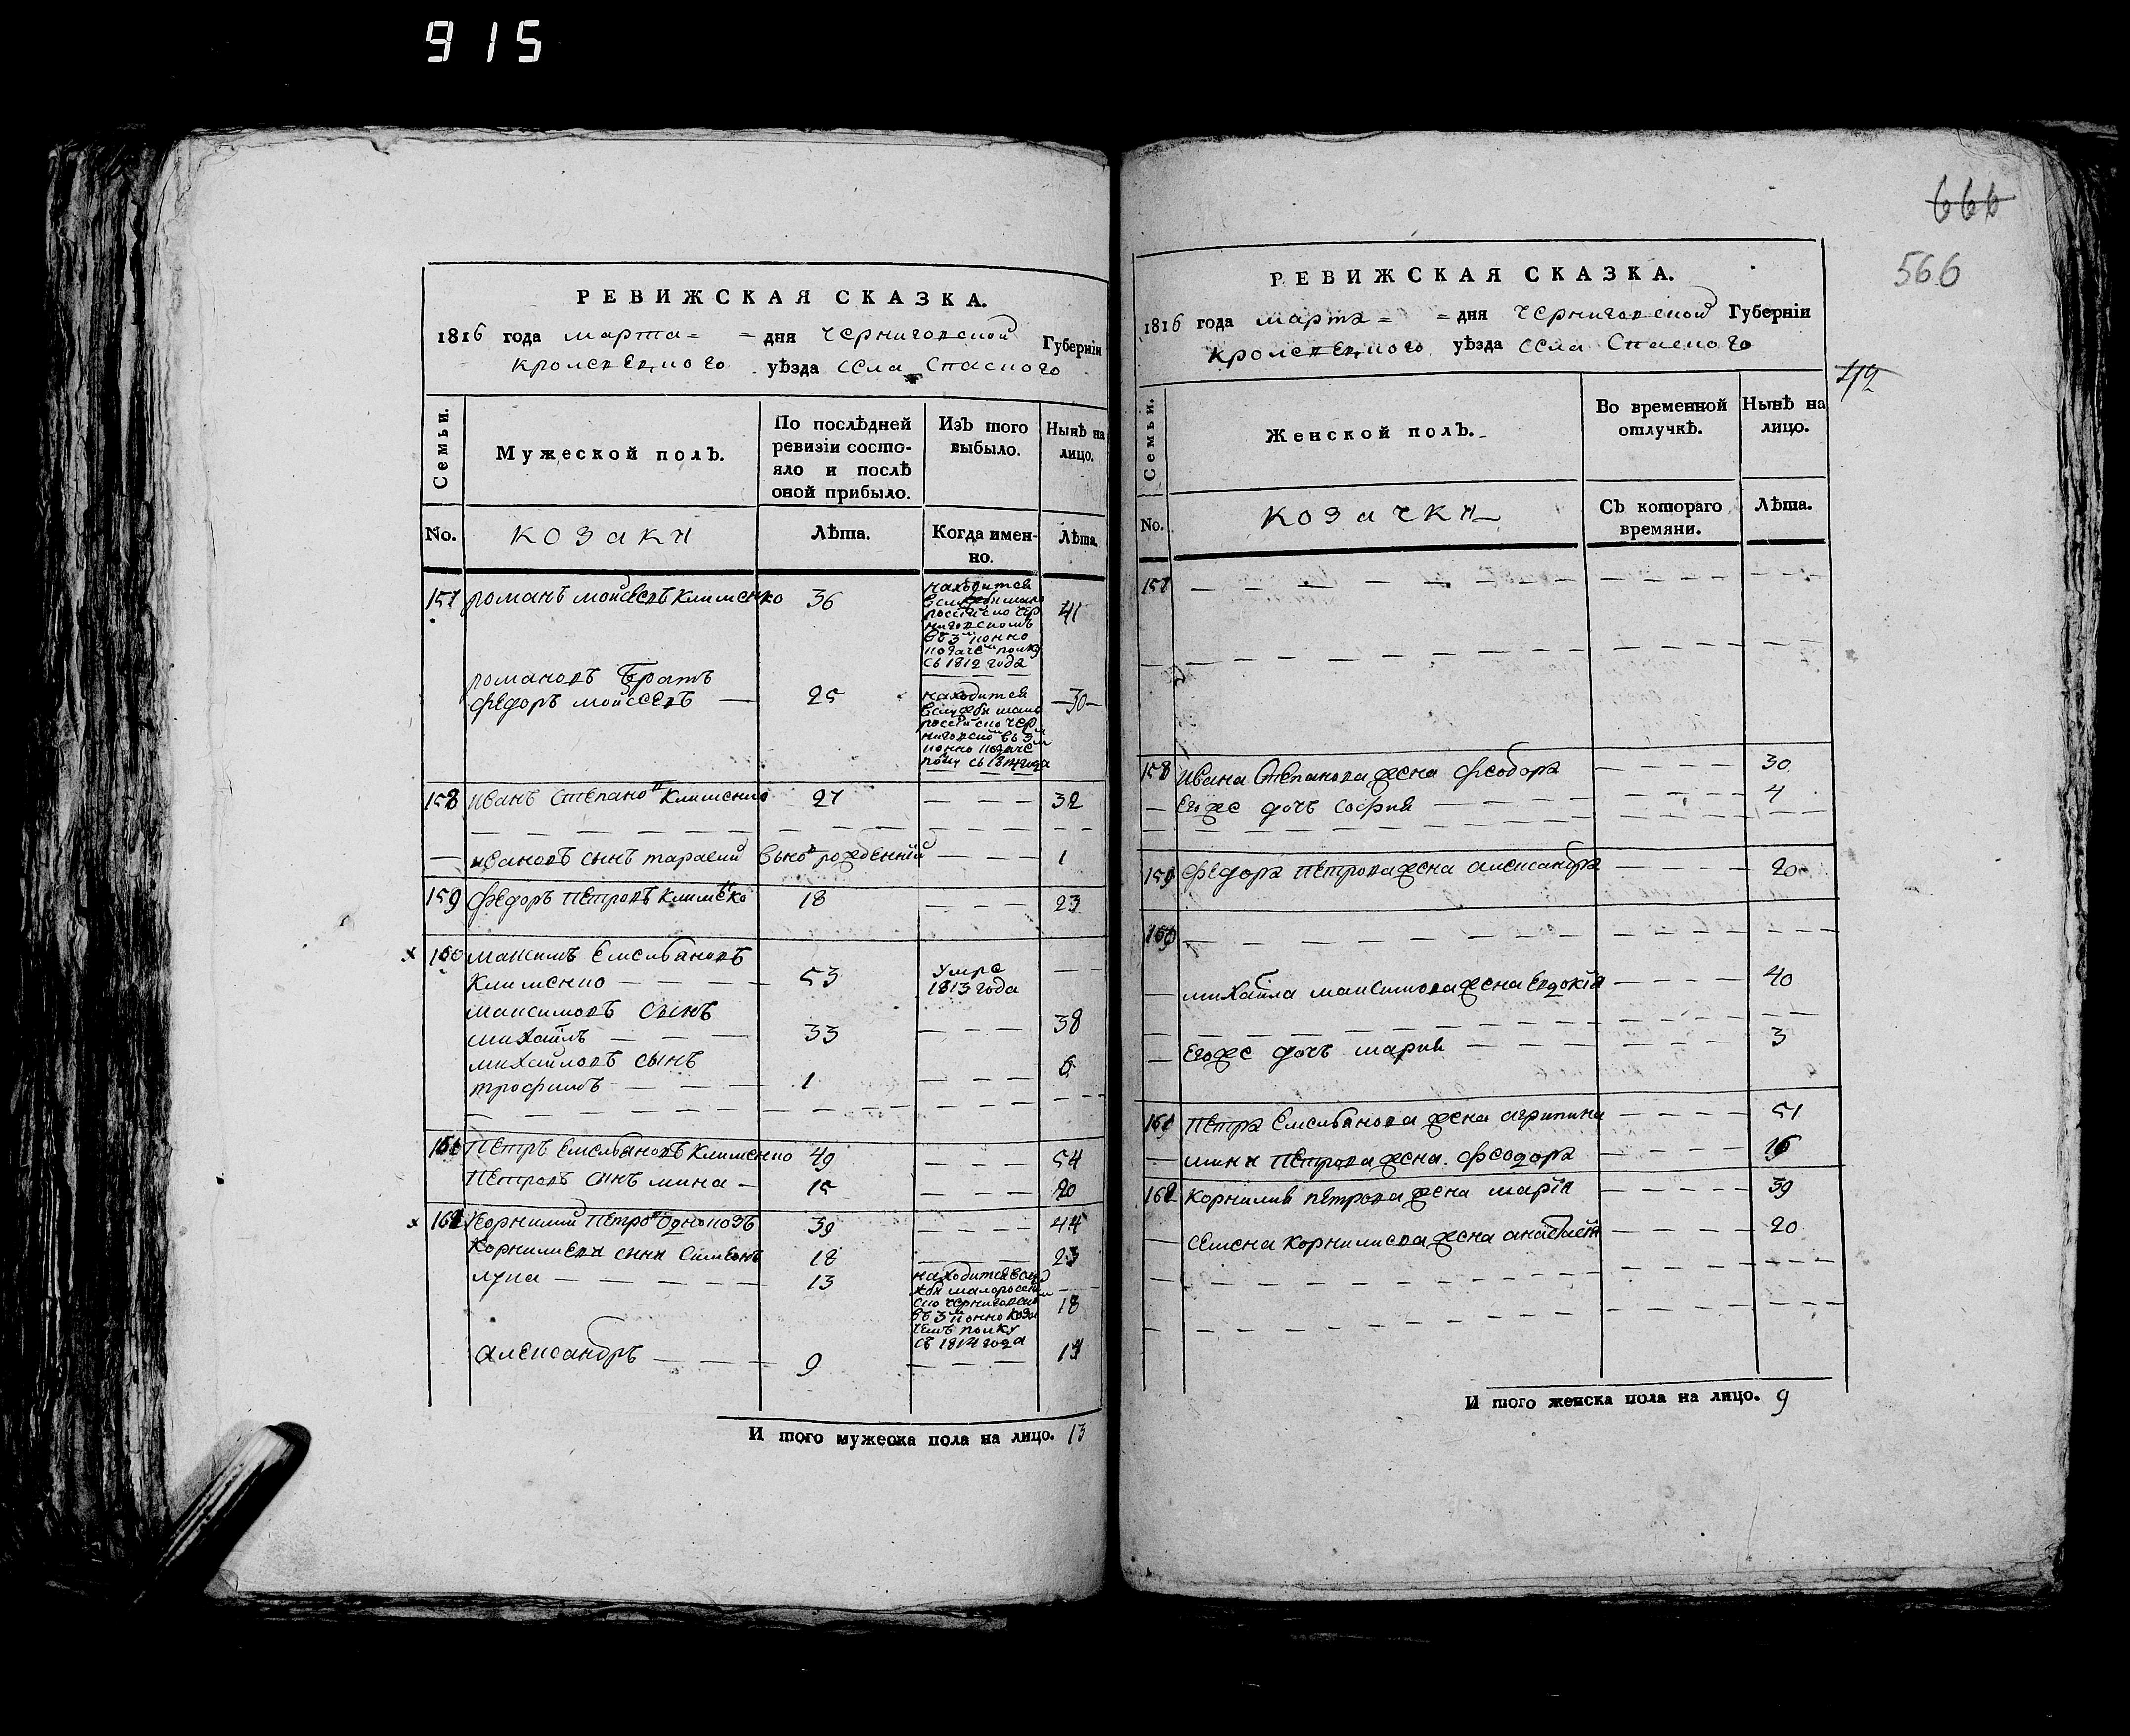 915
РЕВИЖСКАЯ СКАЗКА.
1816 года марта = = дня черниговской Губерніи
кролевецкого уѣзда села Спаского
Семьи.
Мужеской полъ.
По послѣдней
ревизіи состо-
яло и послѣ
оной прибыло.
Изъ того
выбыло.
Нынѣ на
лицо.
No.
козаки
Лѣта.
Когда имен-
но.
Лѣта.
157 романъ мойсеевъ Клименко 36
находится
в службѣ мало
россійско чер
ниговскомъ
въ 3м конно
козачем полку
съ 1812 года
41
романовъ братъ
федоръ мойсеевъ — 25
находится
в службѣ мало
россійско чер
ниговском въ 3м
конно козаче
полку съ 1814 года
—30—
158 иванъ Степанов Клименко 27 — — — 32
— ивановъ сынъ тарасий вьнов рожденній — — — 1
159 федоръ петровъ Клименко 18 — — — 23
х 160 максимъ Емельяновъ
Клименко — — — 53
умре
1813 года
— —
максимовъ сынъ
михайлъ — — — 33 — — — 38
михайловъ сынъ
трофимъ — — — 1 — — — 6
161 Петръ Емельяновъ Клименко 49 — — — 54
Петровъ сынъ мина — 15 — — — 20
х 162 Корнилий Петров Однокозъ 39 — — — 44
Корнилиеви сини Симеонъ 18 — — — 23
лука — — — — 13
находится в служ
бѣ малоросей
ско черниговско
въ 3м конно коза
чемъ полку
съ 1814 года
18
Александръ — — — 9 — — — 14
И того мужеска пола на лицо. 13
666
566
РЕВИЖСКАЯ СКАЗКА.
1816 года марта = = дня черниговской Губерніи
кролевецкого уѣзда села Спаского
412
Семьи.
Женской полъ.
Во временной
отлучкѣ.
Нынѣ на
лицо.
No.
козачки
Съ котораго
времяни.
Лѣта.
157 — — — — — —
158 ивана Степанова жена феодора — — — — 30
— Егоже дочь софия — — — — 4
159 федора петрова жена александра — — — — 20
160 — — — — — —
— михайла максимова жена евдокія — — — — 40
— Егоже дочь мария — — — — 3
161 Петра Емельянова жена агрипина — — — — 51
— мини петрова жена феодора — — — — 16
162 корнилия петрова жена марія — — — — 39
— семена корнилиева жена анастасія — — — — 20
И того женска пола на лицо. 9